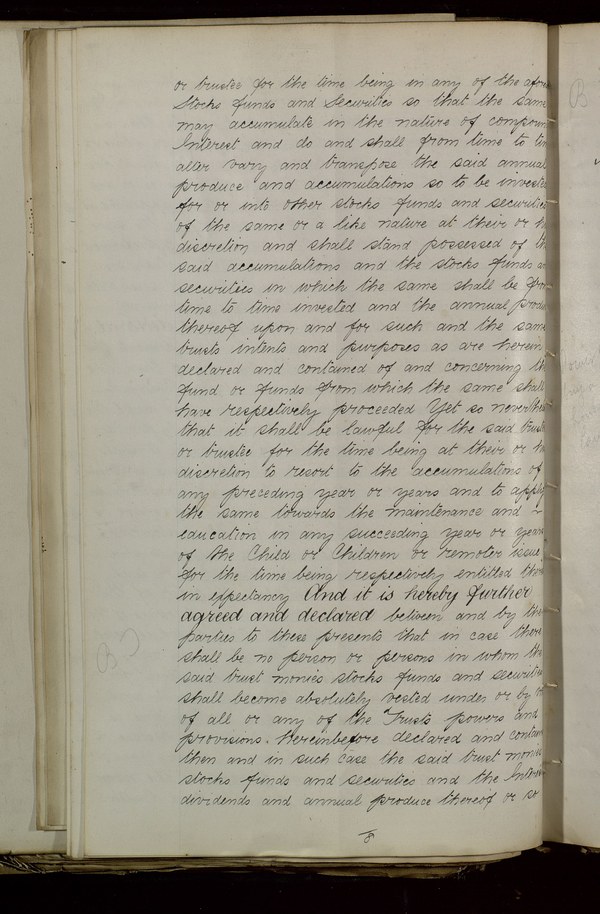 or trustee for the time being in any of the afore
Stocks funds and Securities so that the same
may accumulate in the nature of compoun
Interest and do and shall from time to tim
alter vary and transpose the said annual
produce and accumulations so to be investe
for or into other stocks funds and securitie
of the same or a like nature at their or h
discretion and shall stand possessed of th
said accumulations and the stocks funds a
securities in which the same shall be fro
time to time invested and the annual produ
thereof upon and for such and the same
trusts intents and purposes as are herein
declared and contained of and concerning th
fund or funds from which the same shall
have respectively proceeded Yet so neverthe
that it shall be lawful for the said truste
or trustee for the time being at their or h
discretion to resort to the accumulations of
any preceding year or years and to apply
the same towards the maintenance and
education in any succeeding year or years
of the Child or Children or remoter issue
for the time being respectively entitled there
in expectancy And it is hereby further
agreed and declared between and by the
parties to these presents that in case there
shall be no person or persons in whom the
said trust monies stocks funds and securities
shall become absolutely vested under or by
of all or any of the Trusts powers and
provisions. Hereinbefore declared and contain
then and in such case the said trust monies
stocks funds and securities and the Interes
dividends and annual produce thereof or so
8